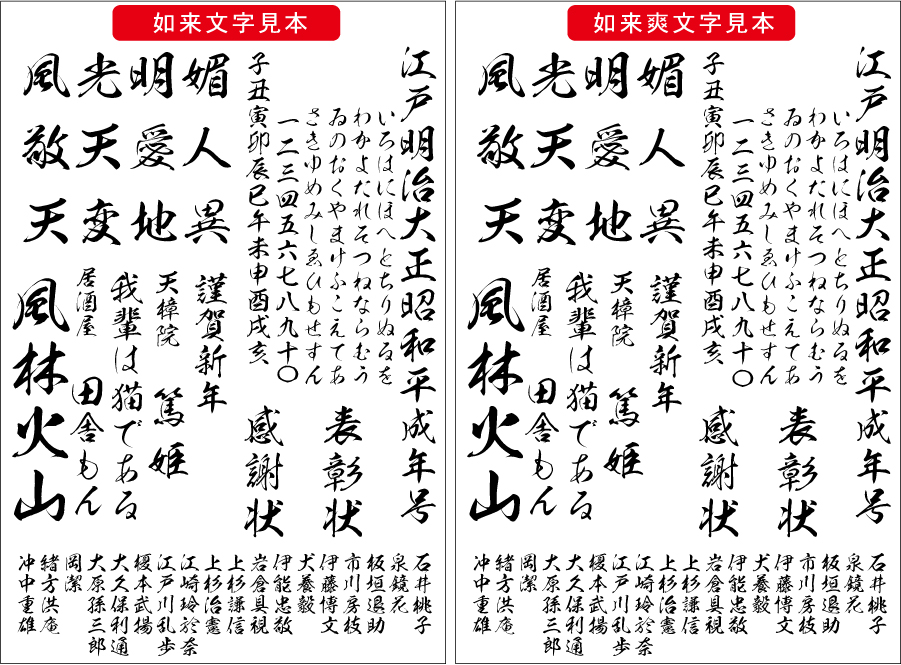 如来文字見本
江戸明治大正昭和平成年号
いろはにほへとちりぬるを
わかよたれそつねならむう
ゐのおくやまけふこえてあ
さきゆめみしゑひもせすん
一二三四五六七八九十〇
子丑寅卯辰巳午未申酉戌亥
表彰状
感謝状
媚人異
明愛地
光天変
風敬天
謹賀新年
天樟院 篤姫
我輩は猫である
居酒屋 田舎もん
風林火山
石井桃子
泉鏡花
板垣退助
市川房枝
伊藤博文
犬養毅
伊能忠敬
岩倉具視
上杉謙信
上杉治憲
江崎玲於奈
江戸川乱歩
榎本武揚
大久保利通
大原孫三郎
岡潔
緒方洪庵
沖中重雄
如来爽文字見本
江戸明治大正昭和平成年号
いろはにほへとちりぬるを
わかよたれそつねならむう
ゐのおくやまけふこえてあ
さきゆめみしゑひもせすん
一二三四五六七八九十〇
子丑寅卯辰巳午未申酉戌亥
表彰状
感謝状
媚人異
明愛地
光天変
風敬天
謹賀新年
天樟院 篤姫
我輩は猫である
居酒屋 田舎もん
風林火山
石井桃子
泉鏡花
板垣退助
市川房枝
伊藤博文
犬養毅
伊能忠敬
岩倉具視
上杉謙信
上杉治憲
江崎玲於奈
江戸川乱歩
榎本武揚
大久保利通
大原孫三郎
岡潔
緒方洪庵
沖中重雄